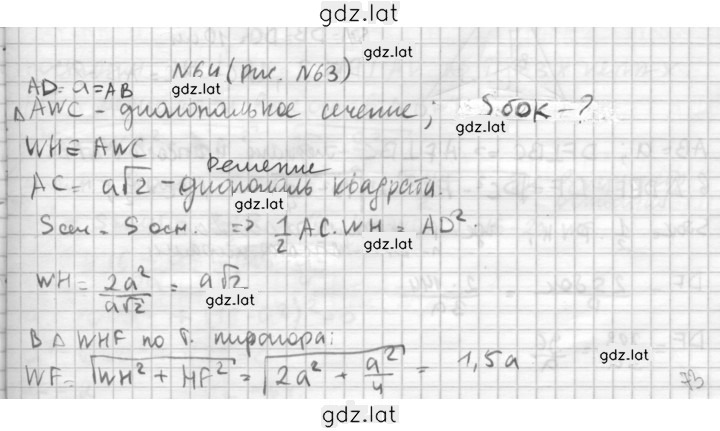 gdz.lat
gdz.lat
N64 (рис. N63)
AD = a = AB
gdz.lat
△ AWC - диагональное сечение; Sбок - ?
gdz.lat
WH ∈ AWC
Решение
AC = a√2 - диагональ квадрата.
gdz.lat
Sсеч = Sосн. => 1/2 AC · WH = AD².
gdz.lat
WH = 2a²/a√2 = a√2
gdz.lat
В △ WHF по т. Пифагора:
WF = √WH² + HF² = √2a² + a²/4 = 1,5a
gdz.lat
73
gdz.lat